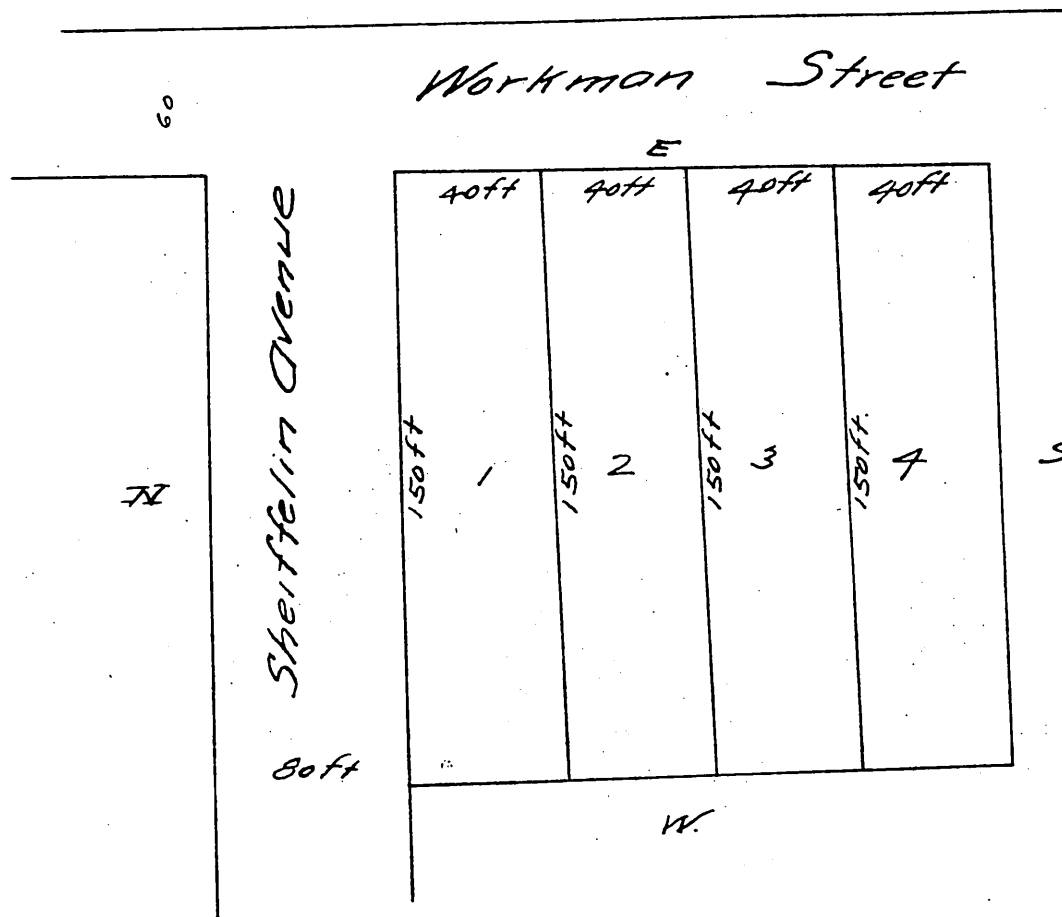 Workman Street
60
E
40ft 40ft 40ft 40ft
Sheiffelin Avenue
N
150ft 1 150ft 2 150ft 3 150ft. 4
S
80ft
W.